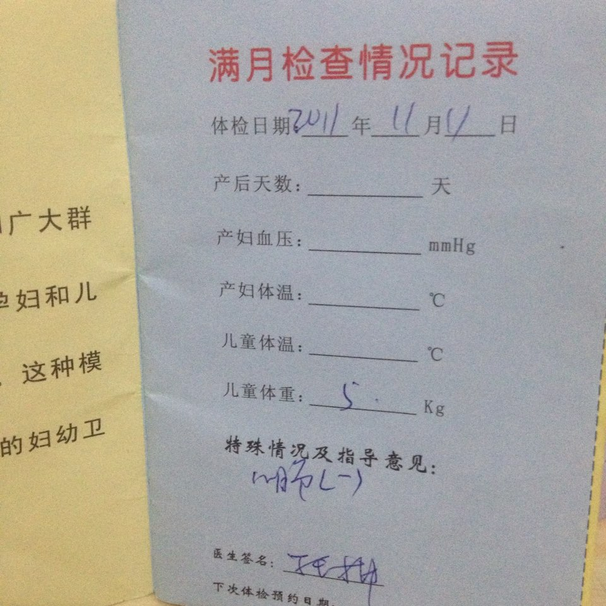 广大群
孕妇和儿
这种模
的妇幼卫
满月检查情况记录
体检日期: 2011 年 11 月 11 日
产后天数: 天
产妇血压: mmHg
产妇体温: ℃
儿童体温: ℃
儿童体重: 5 Kg
特殊情况及指导意见:
(一)
医生签名:
下次体检预约日期: